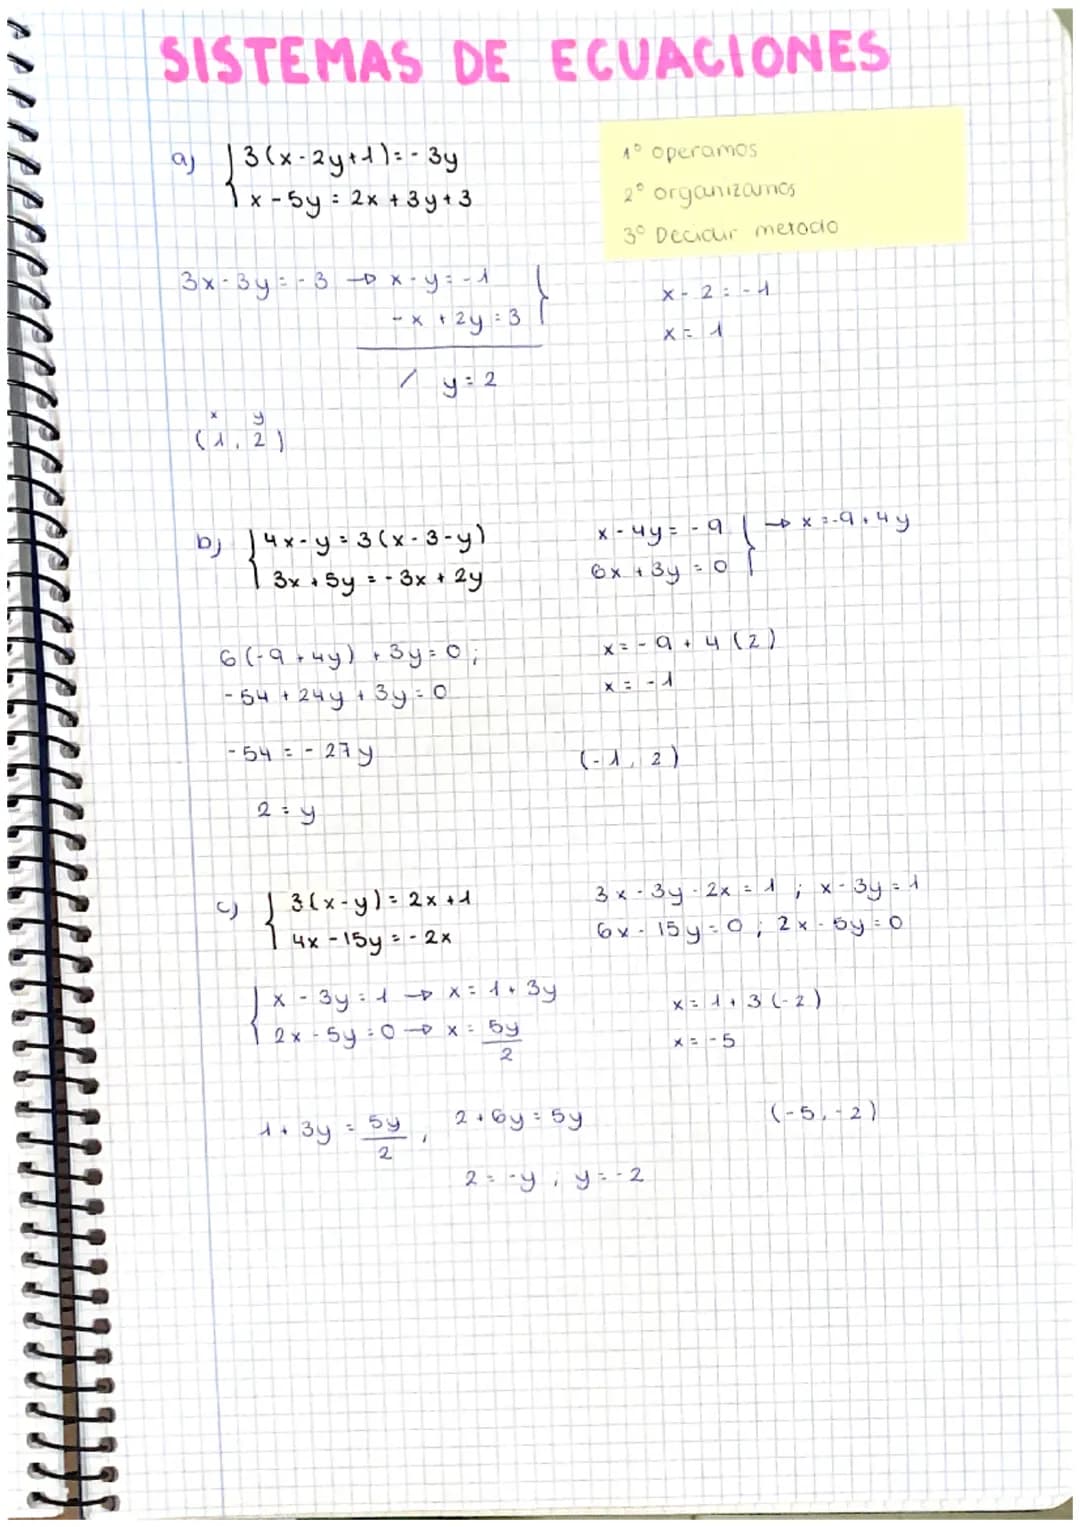 SISTEMAS DE ECUACIONES
a) { 3(x-2y+1)=-3y
x-5y=2x+3y+3
1º operamos
2º organizamos
3º Decidir metodo
3x-3y=-3 → x-y=-1 }
-x+2y=3
/ y=2
x-2=-1
x=1
x y
(1, 2)
b) { 4x-y=3(x-3-y)
3x+5y=-3x+2y
x-4y=-9 } → x=-9+4y
6x+3y=0
6(-9+4y)+3y=0;
-54+24y+3y=0
-54=-27y
2=y
x=-9+4(2)
x=-1
(-1, 2)
c) { 3(x-y)=2x+1
4x-15y=-2x
3x-3y-2x=1; x-3y=1
6x-15y=0; 2x-5y=0
{ x-3y=1 → x=1+3y
2x-5y=0 → x=5y/2
x=1+3(-2)
x=-5
1+3y=5y/2, 2+6y=5y
2=-y; y=-2
(-5,-2)